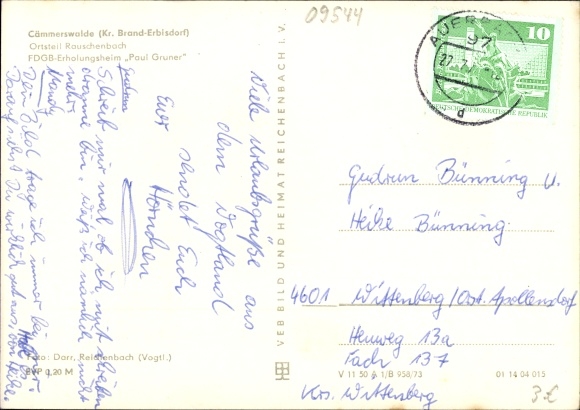 09544
Cämmerswalde (Kr. Brand-Erbisdorf)
Ortsteil Rauschenbach
FDGB-Erholungsheim „Paul Gruner"
Viele Urlaubsgrüße aus
dem Vogtland
sendet Euch
Euer
Hörnchen
Gudrun
Schreib mir mal ob ich mit schreiben
dran bin, weiß ich nämlich nicht
mehr.
Mandy
Dein Bild trage ich immer bei mir.
Foto: Darr, Reichenbach (Vogtl.)
EVP 0,20 M
VEB BILD UND HEIMAT REICHENBACH I. V.
AUERBACH
97
d
10
DEUTSCHE DEMOKRATISCHE REPUBLIK
Gudrun Bünning u.
Heike Bünning
4601 Wittenberg/Ost. Apollensdorf
Heuweg 13a
Fach 137
Krs. Wittenberg
V 11 50 A 1/B 958/73 01 14 04 015
3€